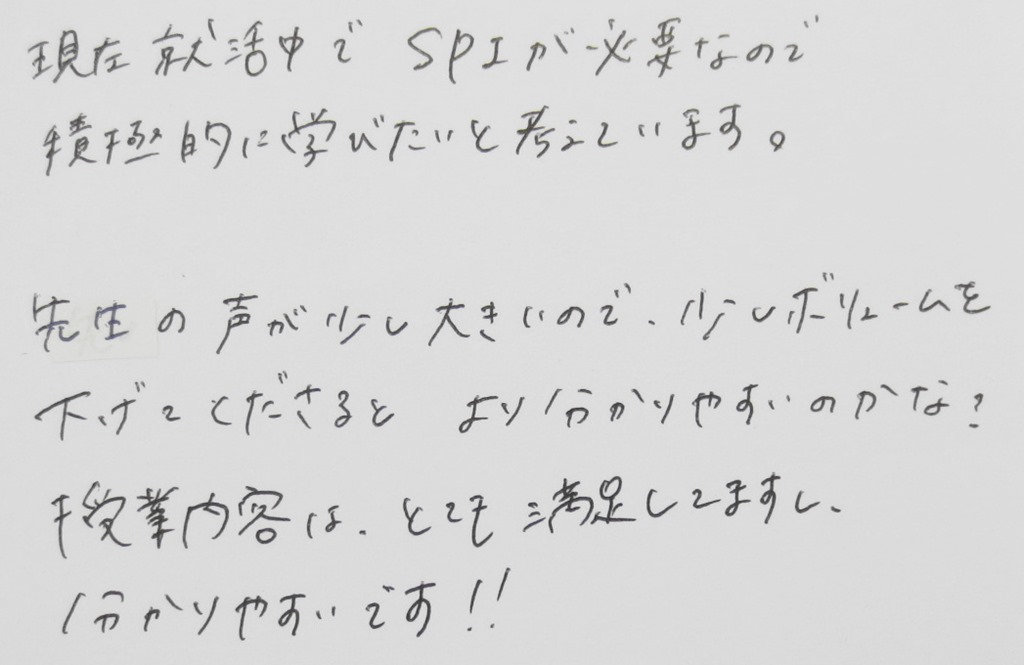 現在就活中で SPIが必要なので
積極的に学びたいと考えています。
先生の声が少し大きいので、少しボリュームを
下げてくださると より分かりやすいのかな?
授業内容は、とても満足してますし、
分かりやすいです!!